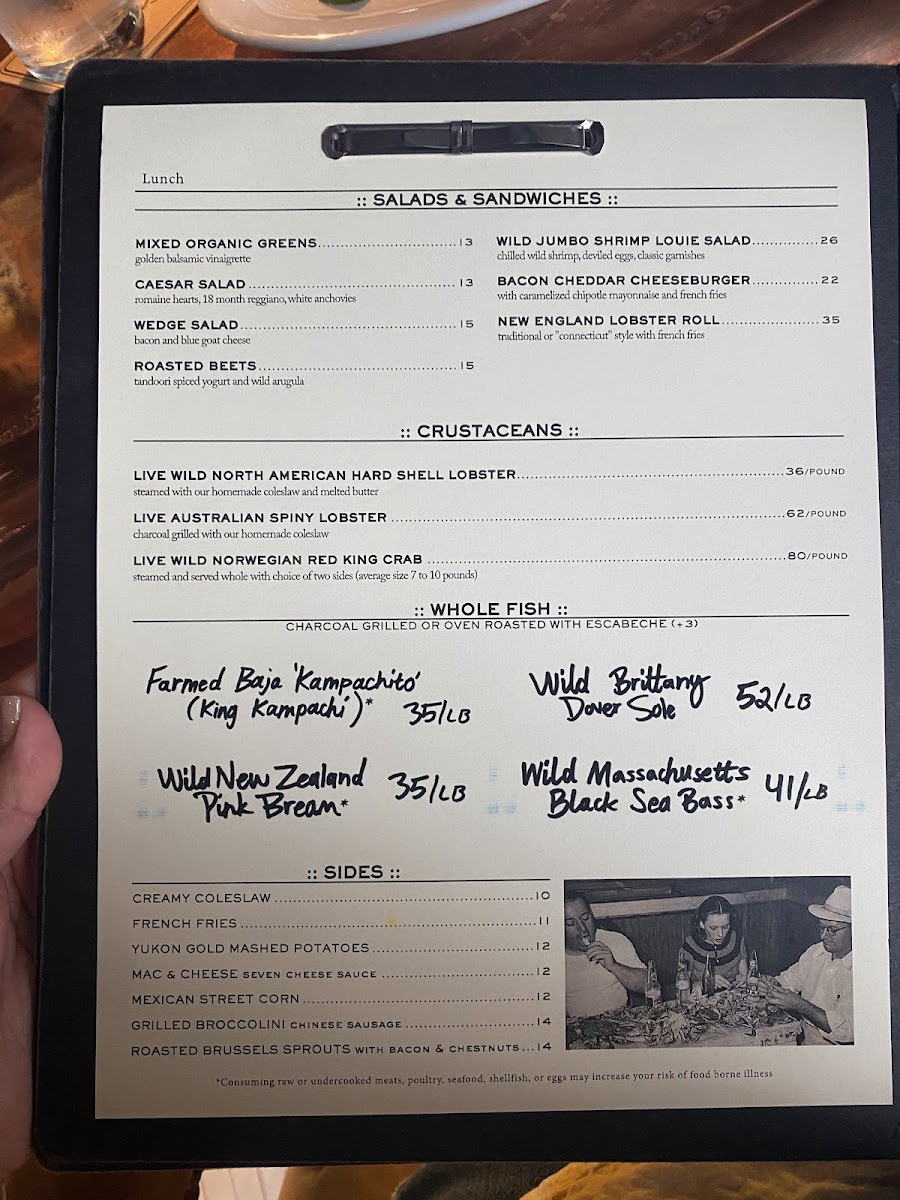 Lunch
:: SALADS & SANDWICHES ::
MIXED ORGANIC GREENS..............................13
golden balsamic vinaigrette
CAESAR SALAD..................................................13
romaine hearts, 18 month reggiano, white anchovies
WEDGE SALAD..................................................15
bacon and blue goat cheese
ROASTED BEETS...............................................15
tandoori spiced yogurt and wild arugula
WILD JUMBO SHRIMP LOUIE SALAD..............26
chilled wild shrimp, deviled eggs, classic garnishes
BACON CHEDDAR CHEESEBURGER...............22
with caramelized chipotle mayonnaise and french fries
NEW ENGLAND LOBSTER ROLL.....................35
traditional or "connecticut" style with french fries
:: CRUSTACEANS ::
LIVE WILD NORTH AMERICAN HARD SHELL LOBSTER..........................................................36/POUND
steamed with our homemade coleslaw and melted butter
LIVE AUSTRALIAN SPINY LOBSTER ....................................................................................62/POUND
charcoal grilled with our homemade coleslaw
LIVE WILD NORWEGIAN RED KING CRAB ............................................................................80/POUND
steamed and served whole with choice of two sides (average size 7 to 10 pounds)
:: WHOLE FISH ::
CHARCOAL GRILLED OR OVEN ROASTED WITH ESCABECHE (+3)
Farmed Baja 'Kampachito'
(King Kampachi)* 35/LB
Wild Brittany
Dover Sole 52/LB
Wild New Zealand
Pink Bream* 35/LB
Wild Massachusetts
Black Sea Bass* 41/LB
:: SIDES ::
CREAMY COLESLAW.........................................................10
FRENCH FRIES.................................................................11
YUKON GOLD MASHED POTATOES....................................12
MAC & CHEESE SEVEN CHEESE SAUCE ..................................12
MEXICAN STREET CORN...................................................12
GRILLED BROCCOLINI CHINESE SAUSAGE.............................14
ROASTED BRUSSELS SPROUTS WITH BACON & CHESTNUTS...14
*Consuming raw or undercooked meats, poultry, seafood, shellfish, or eggs may increase your risk of food borne illness